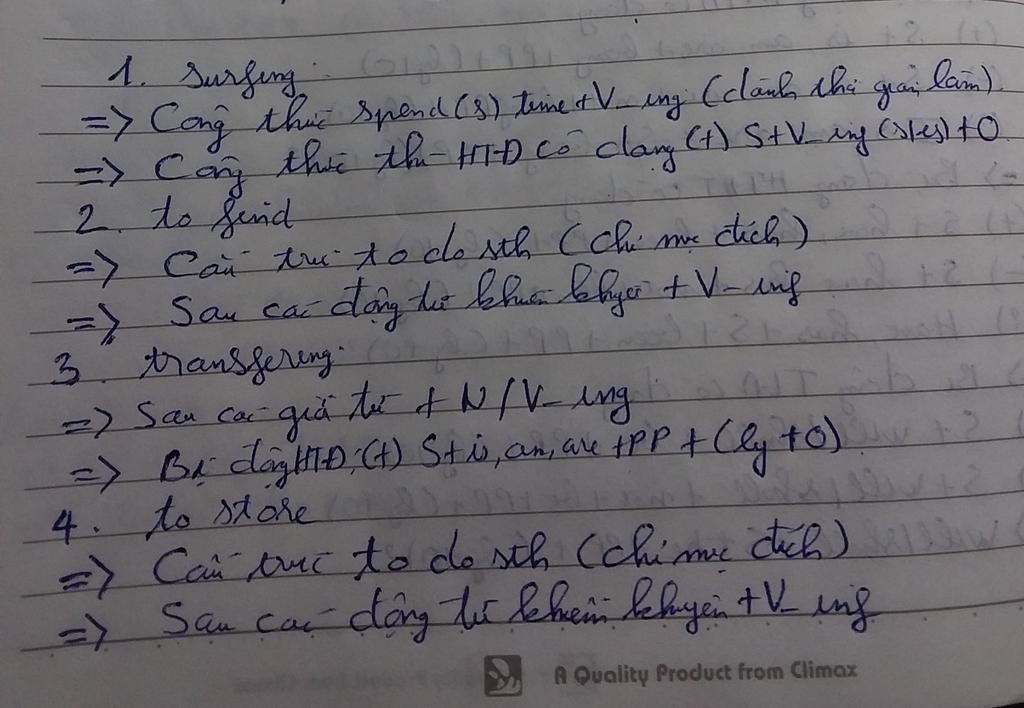 1. surfing:
=> Công thức spend(s) time + V_ing (dành thời gian làm)
=> Công thức thì HTĐ có dạng (+) S+V_ing (s/es)+O
2. to send
=> Cấu trúc to do sth (chỉ mục đích)
=> Sau các động từ khuên khuyên + V-ing
3. transfering.
=> Sau các giới từ + N/V_ing
=> Bị động HTĐ: (+) S+is, am, are +PP + (by +O)
4. to store
=> Cấu trúc to do sth (chỉ mục đích)
=> Sau các động từ khuên khuyên +V_ing
A Quality Product from Climax